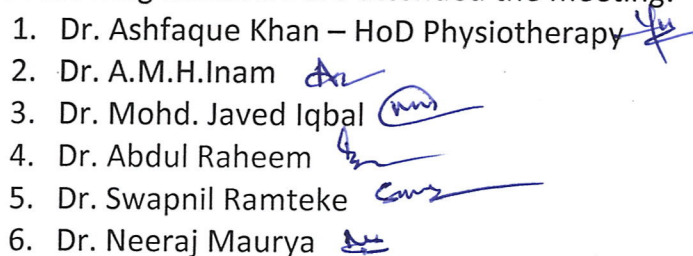 attended the meeting:
1. Dr. Ashfaque Khan – HoD Physiotherapy
2. Dr. A.M.H.Inam
3. Dr. Mohd. Javed Iqbal
4. Dr. Abdul Raheem
5. Dr. Swapnil Ramteke
6. Dr. Neeraj Maurya